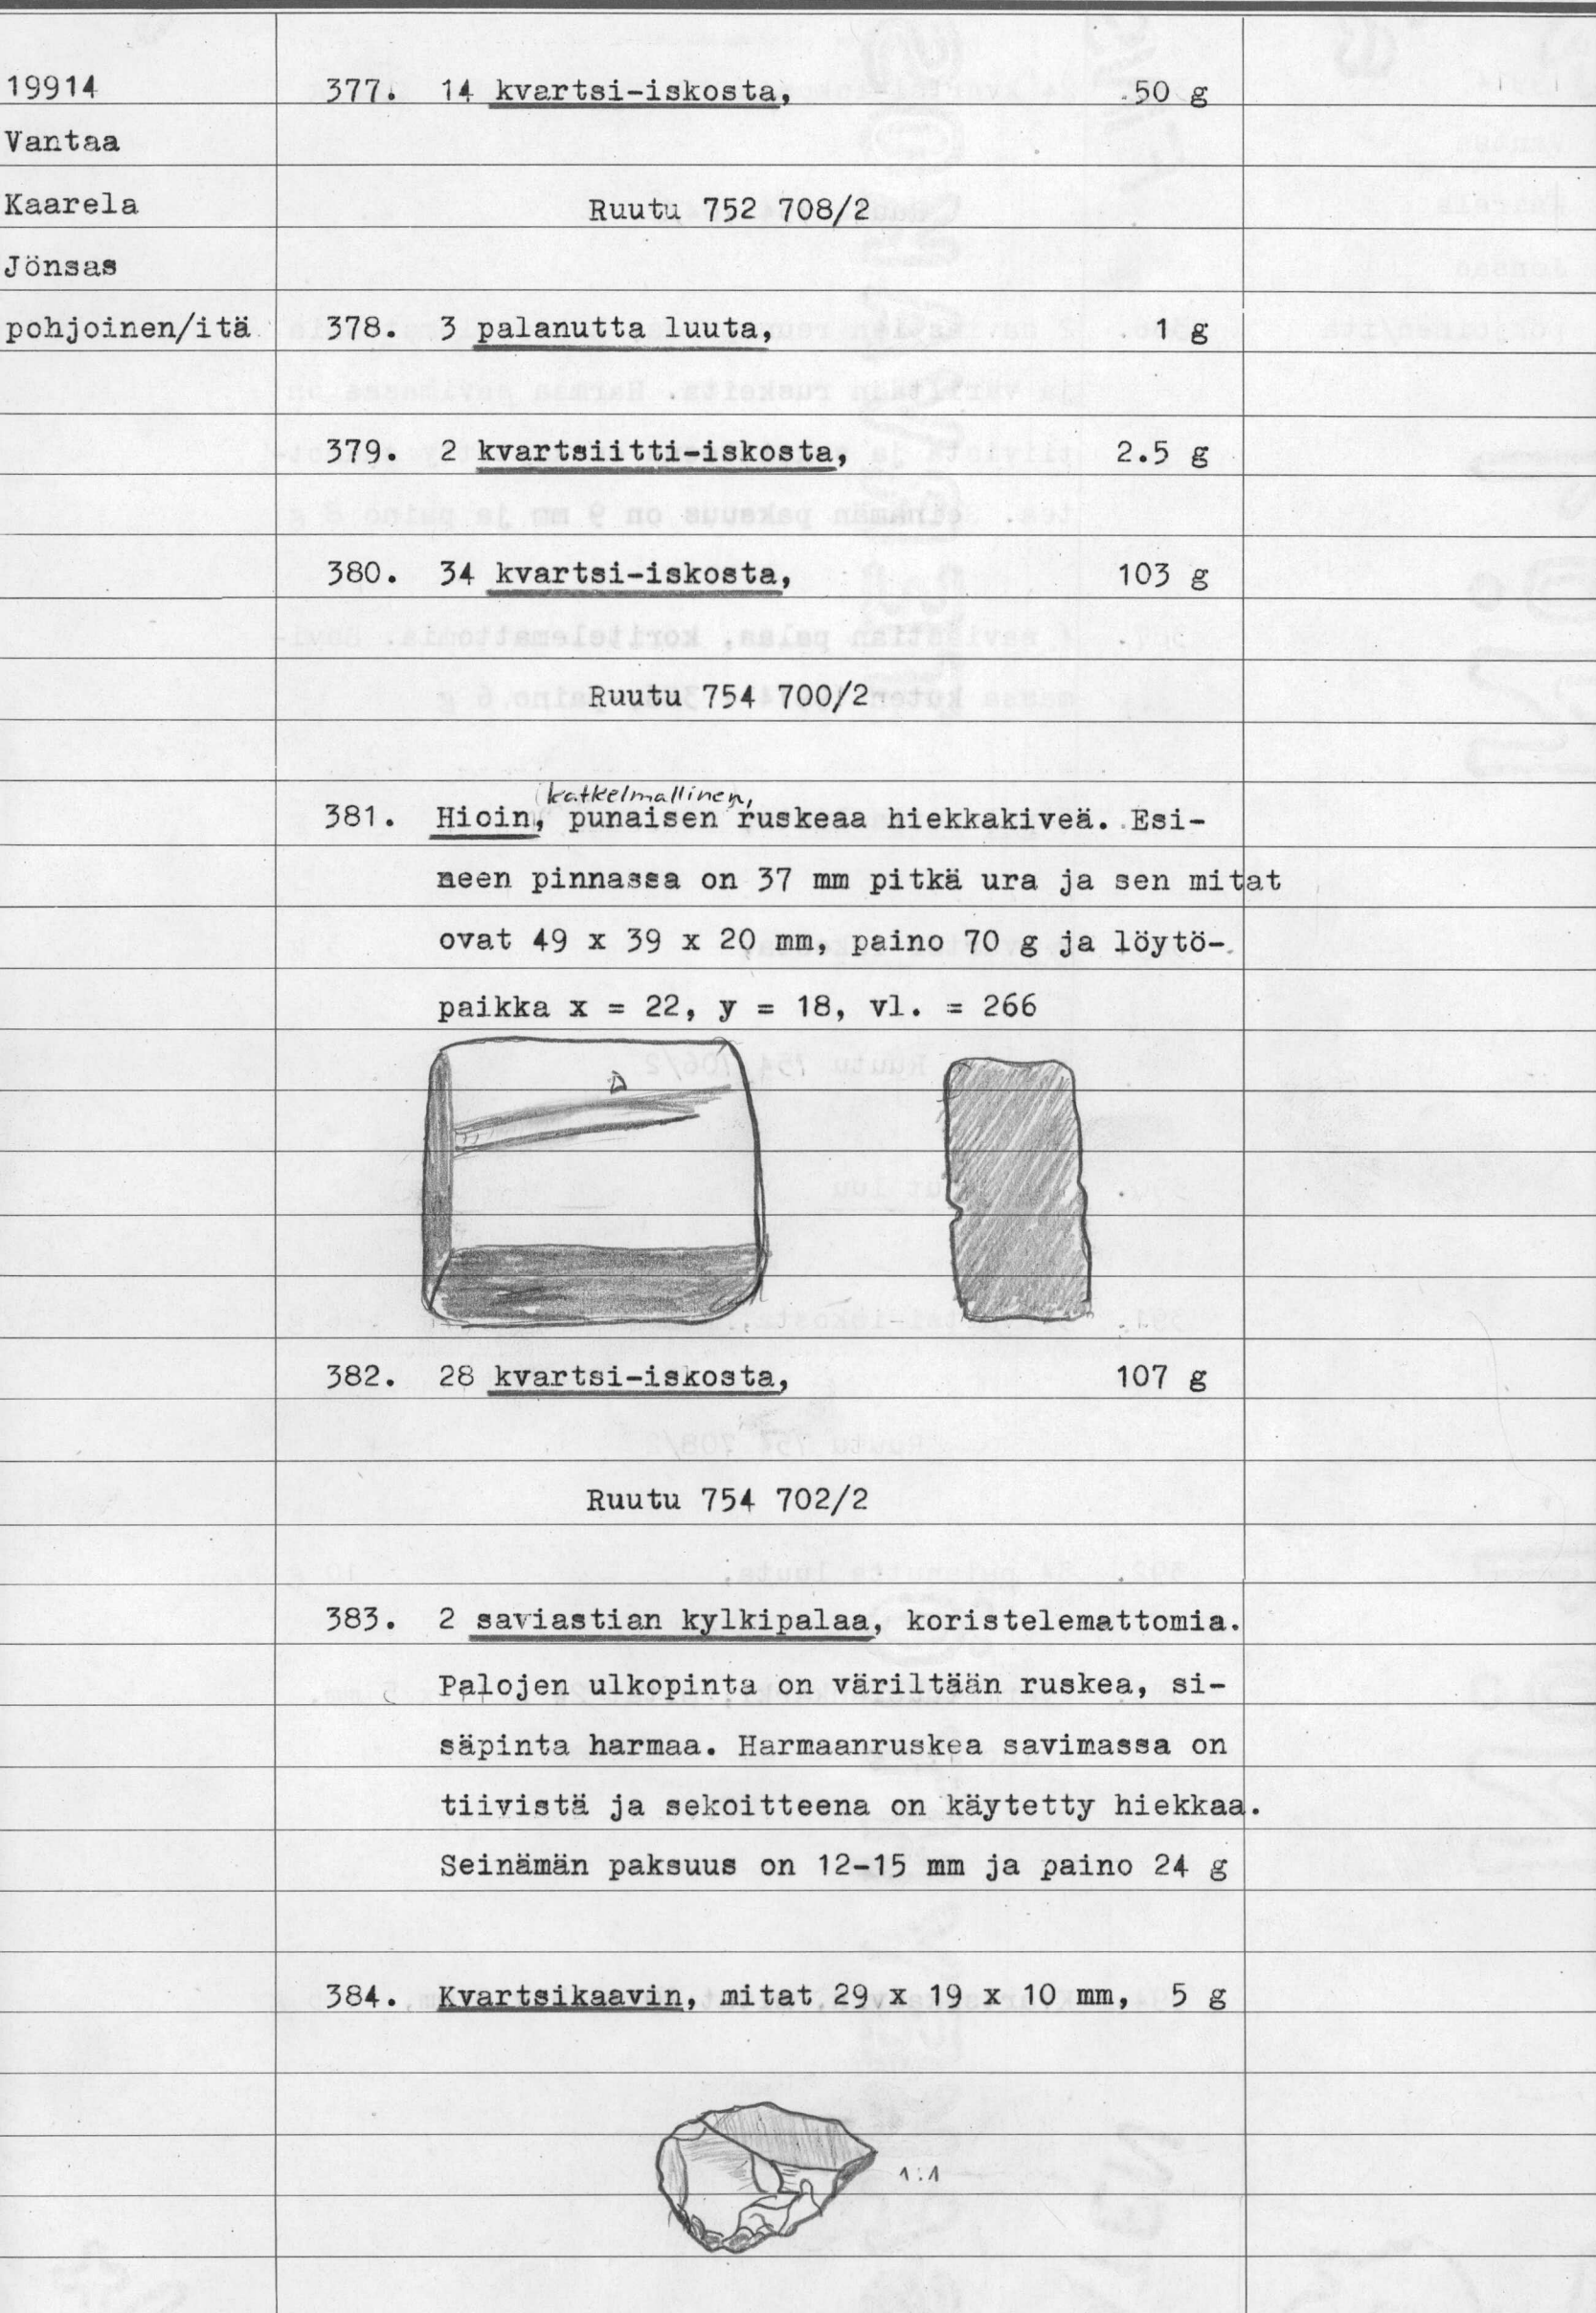 19914
Vantaa
Kaarela
Jönsas
pohjoinen/itä
377. 14 kvartsi-iskosta, 50 g
Ruutu 752 708/2
378. 3 palanutta luuta, 1 g
379. 2 kvartsiitti-iskosta, 2.5 g
380. 34 kvartsi-iskosta, 103 g
Ruutu 754 700/2
katkelmallinen,
381. Hioin, punaisen ruskeaa hiekkakiveä. Esi-
neen pinnassa on 37 mm pitkä ura ja sen mitat
ovat 49 x 39 x 20 mm, paino 70 g ja löytö-
paikka x = 22, y = 18, vl. = 266
382. 28 kvartsi-iskosta, 107 g
Ruutu 754 702/2
383. 2 saviastian kylkipalaa, koristelemattomia.
Palojen ulkopinta on väriltään ruskea, si-
säpinta harmaa. Harmaanruskea savimassa on
tiivistä ja sekoitteena on käytetty hiekkaa.
Seinämän paksuus on 12-15 mm ja paino 24 g
384. Kvartsikaavin, mitat 29 x 19 x 10 mm, 5 g
1:1